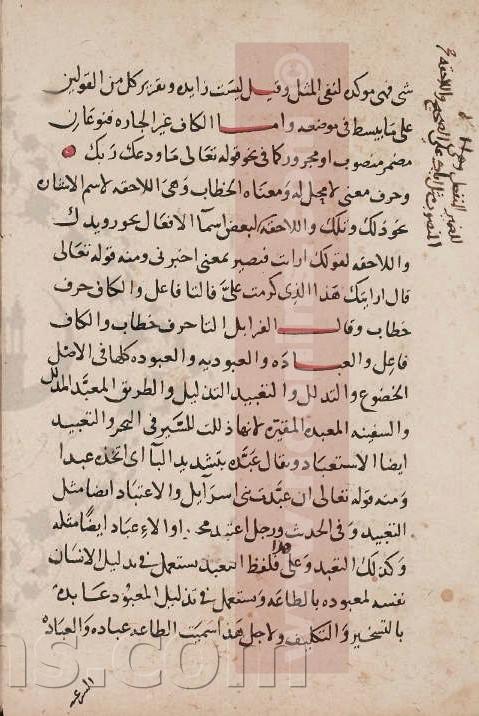 شى فهى موكده لنفى المثل وقيل ليست زايده وتقرير كل من القولين
على ما يبسط فى موضعه واما الكاف غير الجاره فنوعان
مضمر منصوب او مجرور كما فى نحو قوله تعالى ما ودعك ربك
وحرف معنى لا محل له ومعناه الخطاب وهى اللاحقه لاسم الاشاره
نحو ذلك وتلك واللاحقه لبعض اسما الافعال نحو رويدك
واللاحقه لقولك ارات فتصير بمعنى اخبرنى ومنه قوله تعالى
قال ارايتك هذا الذى كرمت علىّ فالتا فاعل والكاف حرف
خطاب وقال الفرا بل التا حرف خطاب والكاف
فاعل والعباده والعبوديه والعبوده كلها فى الاصل
الخضوع والتذلل والتعبيد التذليل والطريق المعبّد المذلل
والسفينه المعبده المقيّره لانها ذللت للسير فى البحر والتعبيد
ايضا الاستعباد ويقال عبّده بتشديد البا اى اتخذه عبدا
ومنه قوله تعالى ان عبّدت بنى اسرايل والاعتباد ايضا مثل
التعبيد وفى الحديث ورجل اعتبد محررا والاعباد ايضًا مثله
وكذلك التعبد وعلى هذا فلفظ التعبد يستعمل فى تذليل الانسان
نفسه لمعبوده بالطاعه ويستعمل فى تذليل المعبود عابده
بالتسخير والتكليف ولاجل هذا سميت الطاعه عباده والعباد
للضمير المنفصل
على الصحيح واللاحقه